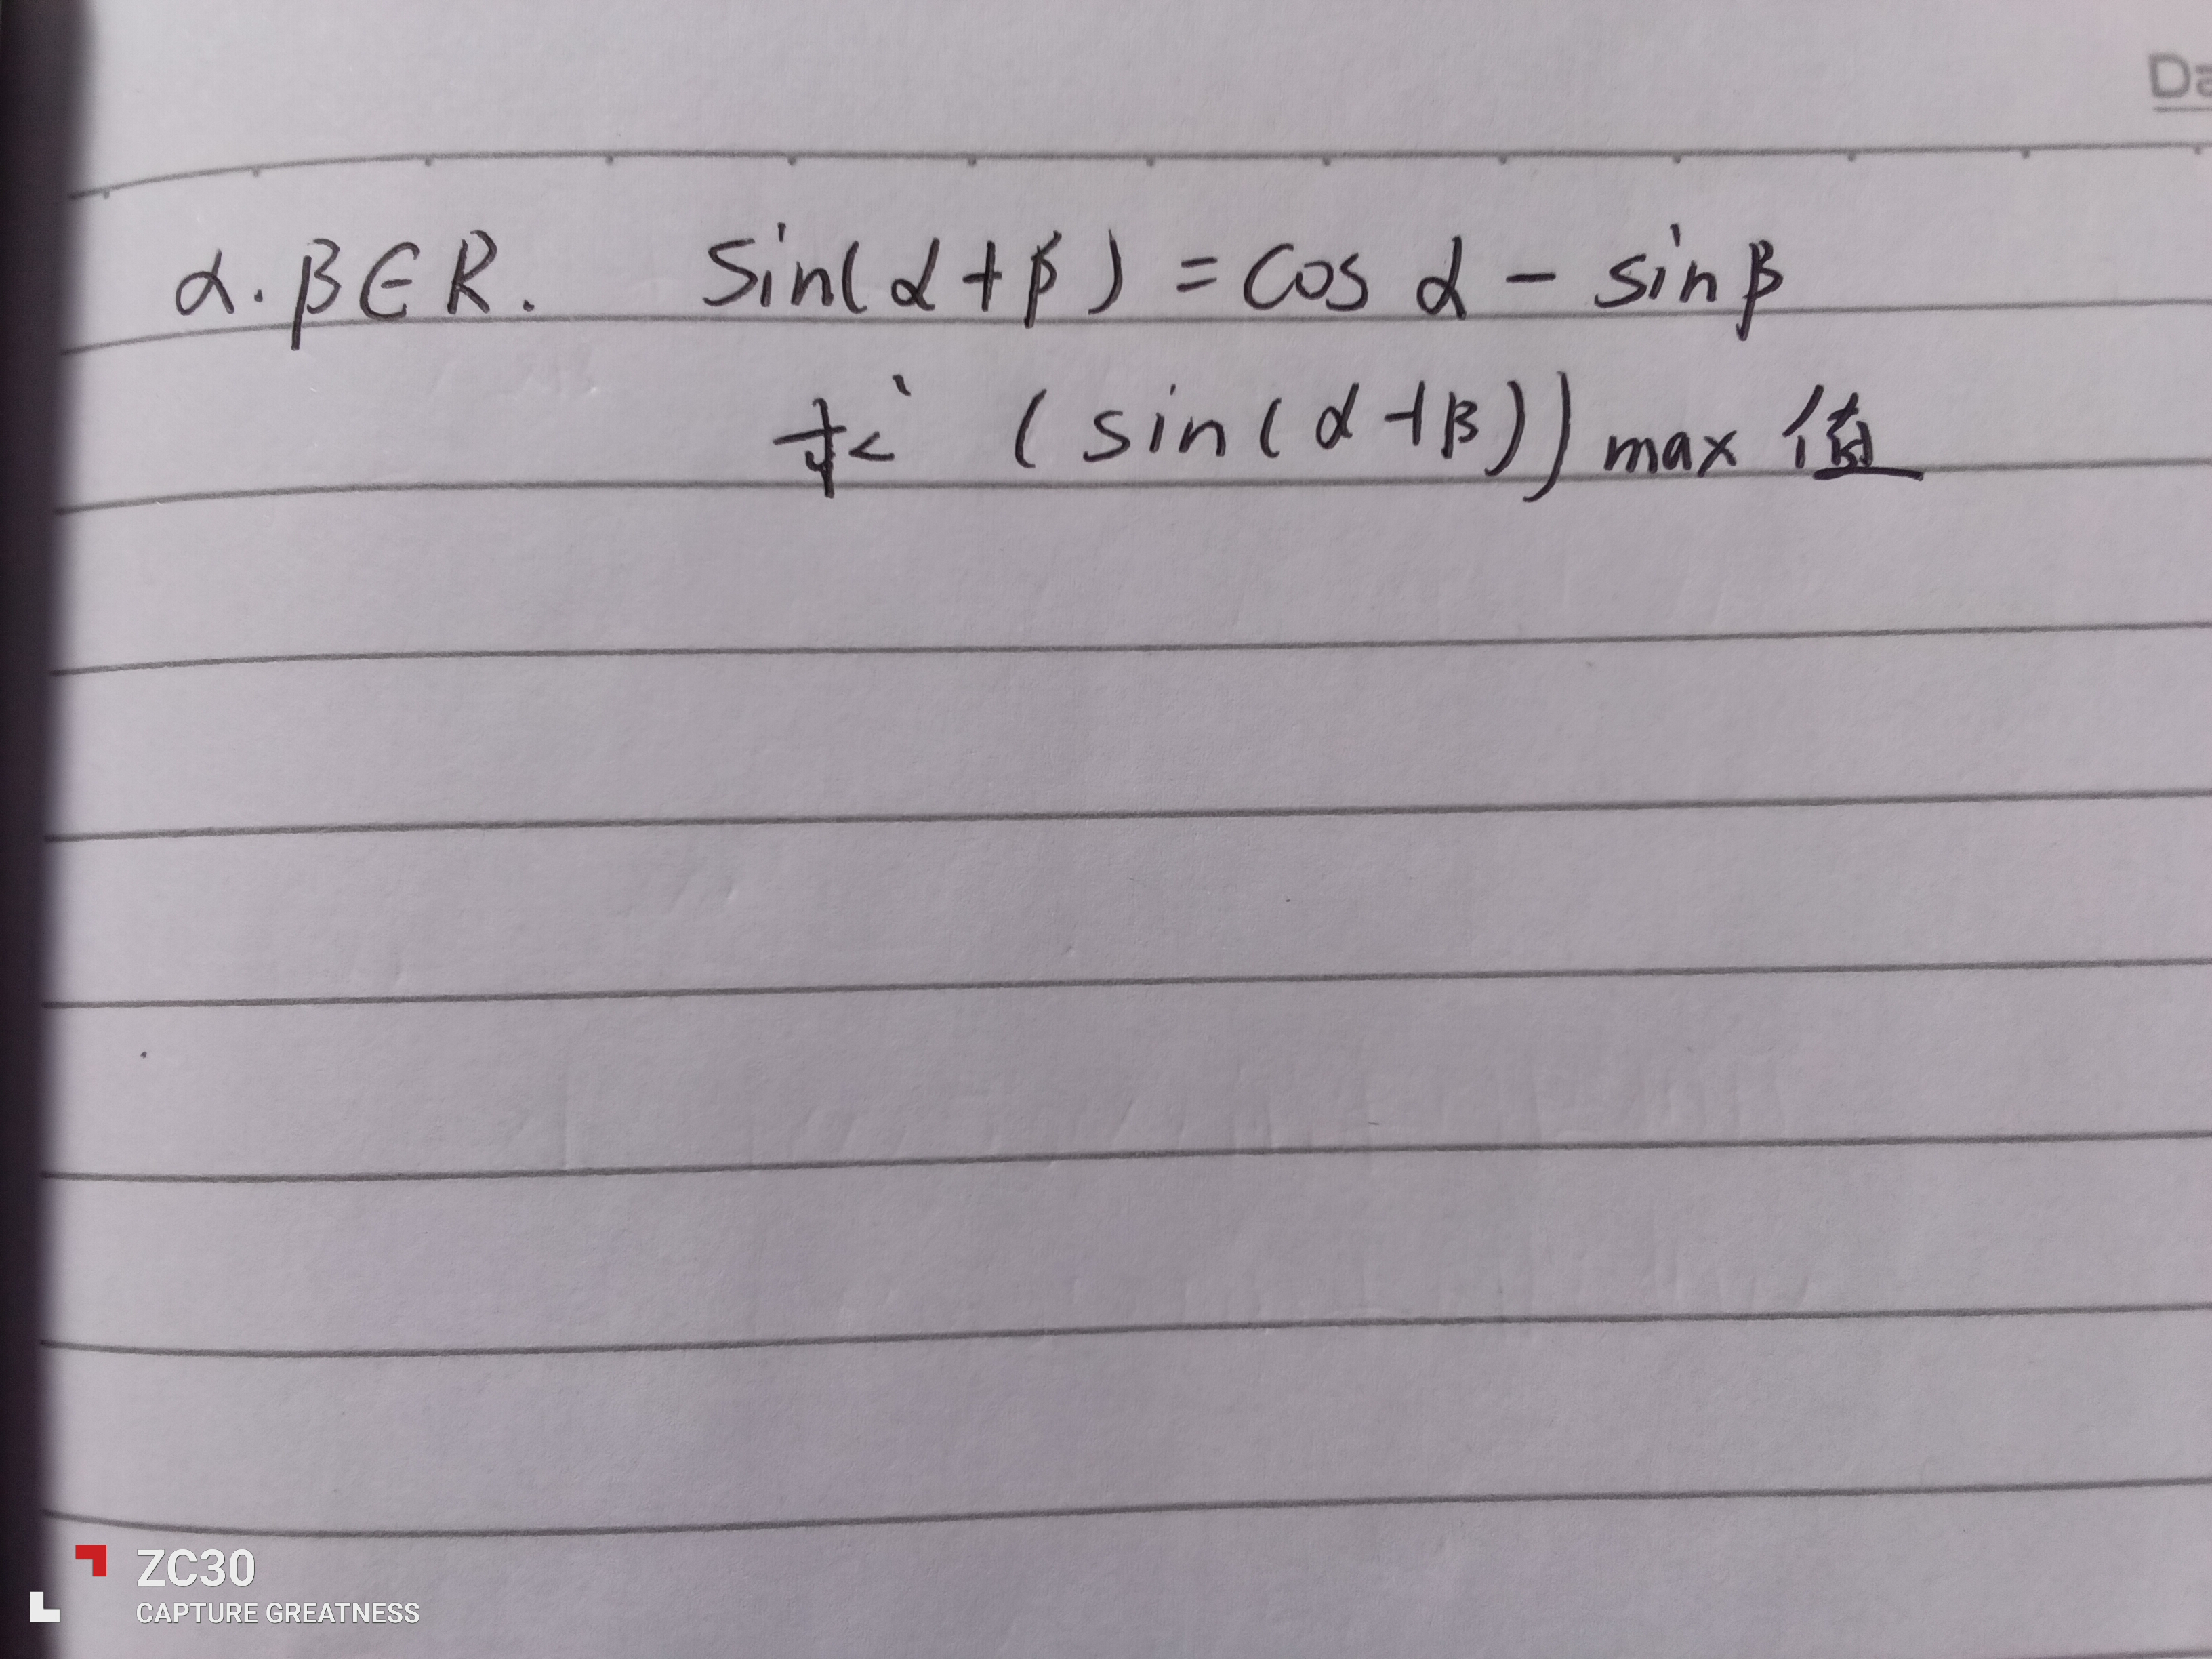 Da
α.β∈R. sin(α+β)=cosα-sinβ
求 (sin(α+β))max 值
ZC30
CAPTURE GREATNESS